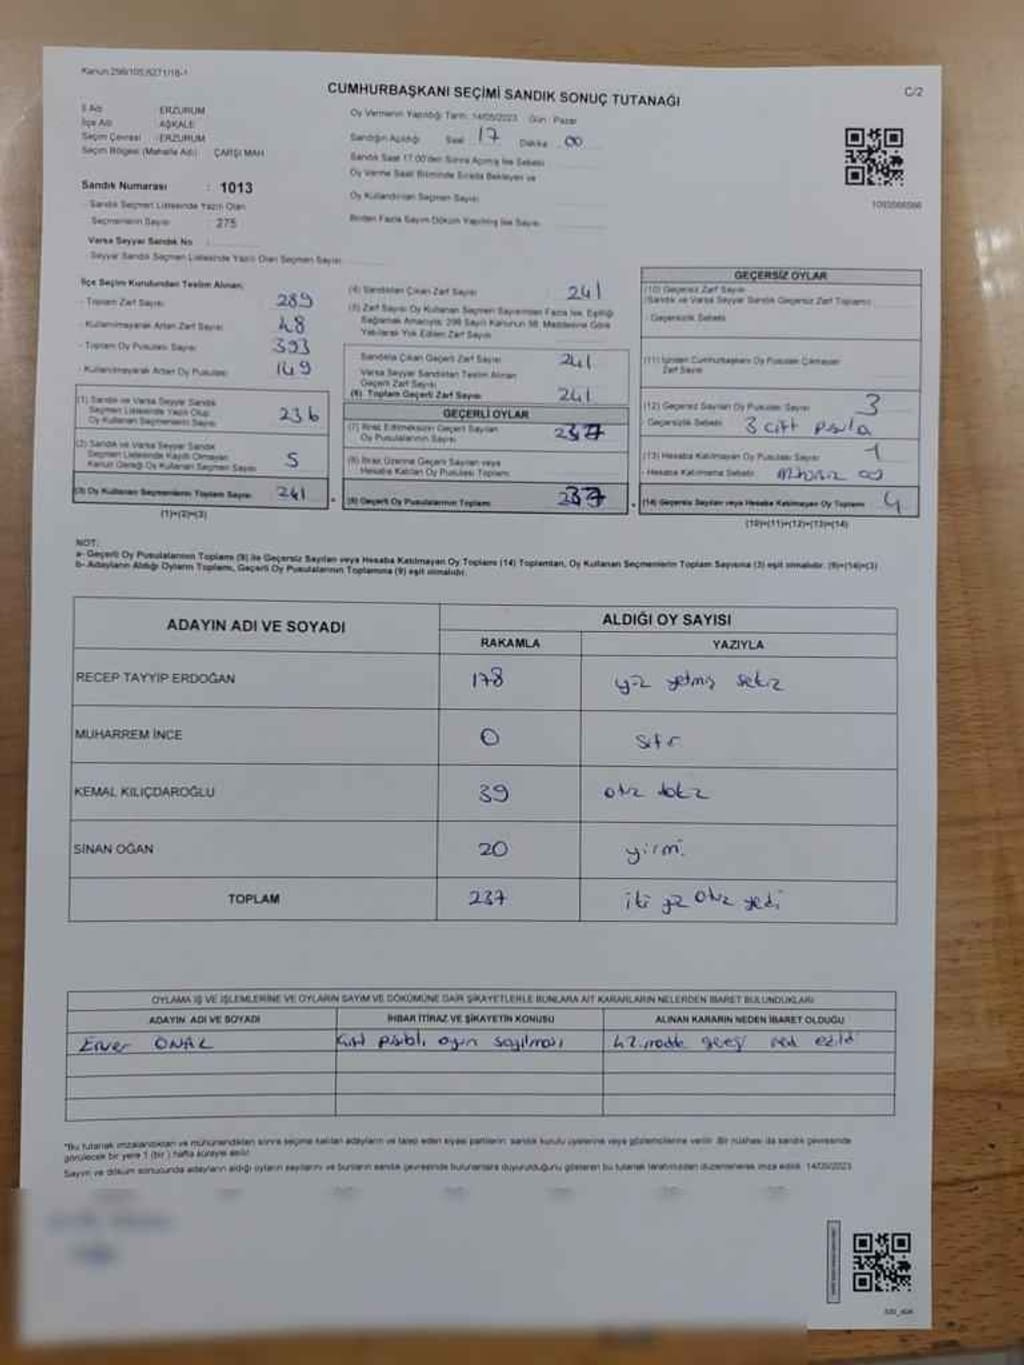 Kanun:298/105,6271/18-1
C/2
CUMHURBAŞKANI SEÇİMİ SANDIK SONUÇ TUTANAĞI
İl Adı : ERZURUM
İlçe Adı : AŞKALE
Seçim Çevresi : ERZURUM
Seçim Bölgesi (Mahalle Adı) : ÇARŞI MAH
Sandık Numarası : 1013
Sandık Seçmen Listesinde Yazılı Olan
Seçmenlerin Sayısı : 275
Varsa Seyyar Sandık No :
Seyyar Sandık Seçmen Listesinde Yazılı Olan Seçmen Sayısı :
Oy Vermenin Yapıldığı Tarih: 14/05/2023 Gün : Pazar
Sandığın Açıldığı Saat : 17 Dakika : 00
Sandık Saat 17.00'den Sonra Açılmış İse Sebebi
Oy Verme Saati Bitiminde Sırada Bekleyen ve
Oy Kullandırılan Seçmen Sayısı
Birden Fazla Sayım Döküm Yapılmış İse Sayısı
İlçe Seçim Kurulundan Teslim Alınan;
- Toplam Zarf Sayısı : 289
- Kullanılmayarak Artan Zarf Sayısı : 48
- Toplam Oy Pusulası Sayısı : 393
- Kullanılmayarak Artan Oy Pusulası : 149
(1) Sandık ve Varsa Seyyar Sandık
Seçmen Listesinde Yazılı Olup
Oy Kullanan Seçmenlerin Sayısı : 236
(2) Sandık ve Varsa Seyyar Sandık
Seçmen Listesinde Kayıtlı Olmayan
Kanun Gereği Oy Kullanan Seçmen Sayısı : 5
(3) Oy Kullanan Seçmenlerin Toplam Sayısı : 241
(1)+(2)=(3)
(4) Sandıktan Çıkan Zarf Sayısı : 241
(5) Zarf Sayısı Oy Kullanan Seçmen Sayısından Fazla İse, Eşitliği
Sağlamak Amacıyla; 298 Sayılı Kanunun 98. Maddesine Göre
Yakılarak Yok Edilen Zarf Sayısı
Sandıkta Çıkan Geçerli Zarf Sayısı : 241
Varsa Seyyar Sandıktan Teslim Alınan
Geçerli Zarf Sayısı
(6) Toplam Geçerli Zarf Sayısı : 241
GEÇERLİ OYLAR
(7) İtiraz Edilmeksizin Geçerli Sayılan
Oy Pusulalarının Sayısı : 237
(8) İtiraz Üzerine Geçerli Sayılan veya
Hesaba Katılan Oy Pusulası Toplamı
(9) Geçerli Oy Pusulalarının Toplamı : 237
GEÇERSİZ OYLAR
(10) Geçersiz Zarf Sayısı
(Sandık ve Varsa Seyyar Sandık Geçersiz Zarf Toplamı)
- Geçersizlik Sebebi :
(11) İçinden Cumhurbaşkanı Oy Pusulası Çıkmayan
Zarf Sayısı
(12) Geçersiz Sayılan Oy Pusulası Sayısı : 3
- Geçersizlik Sebebi : 3 Çift pusula
(13) Hesaba Katılmayan Oy Pusulası Sayısı : 1
- Hesaba Katılmama Sebebi : Mühürsüz oy
(14) Geçersiz Sayılan veya Hesaba Katılmayan Oy Toplamı : 4
(10)+(11)+(12)+(13)=(14)
NOT:
a- Geçerli Oy Pusulalarının Toplamı (9) ile Geçersiz Sayılan veya Hesaba Katılmayan Oy Toplamı (14) Toplamları, Oy Kullanan Seçmenlerin Toplam Sayısına (3) eşit olmalıdır. (9)+(14)=(3)
b- Adayların Aldığı Oyların Toplamı, Geçerli Oy Pusulalarının Toplamına (9) eşit olmalıdır.
ADAYIN ADI VE SOYADI ALDIĞI OY SAYISI
RAKAMLA YAZIYLA
RECEP TAYYİP ERDOĞAN 178 yüz yetmiş sekiz
MUHARREM İNCE 0 sıfır
KEMAL KILIÇDAROĞLU 39 otuz dokuz
SİNAN OĞAN 20 yirmi
TOPLAM 237 iki yüz otuz yedi
OYLAMA İŞ VE İŞLEMLERİNE VE OYLARIN SAYIM VE DÖKÜMÜNE DAİR ŞİKAYETLERLE BUNLARA AİT KARARLARIN NELERDEN İBARET BULUNDUKLARI
ADAYIN ADI VE SOYADI İHBAR İTİRAZ VE ŞİKAYETİN KONUSU ALINAN KARARIN NEDEN İBARET OLDUĞU
Enver ÜNAL Çift oyun sayılması 42. madde
*Bu tutanak imzalandıktan ve mühürlendikten sonra seçime katılan adayların ve talep eden siyasi partilerin sandık kurulu üyelerine veya gözlemcilerine verilir. Bir nüshası da sandık çevresinde
görülecek bir yere 1 (bir) hafta süreyle asılır.
Sayım ve döküm sonucunda adayların aldığı oyların sayılarını ve bunların sandık çevresinde bulunanlara duyurulduğunu gösteren bu tutanak tarafımızdan düzenlenerek imza edildi. 14/05/2023